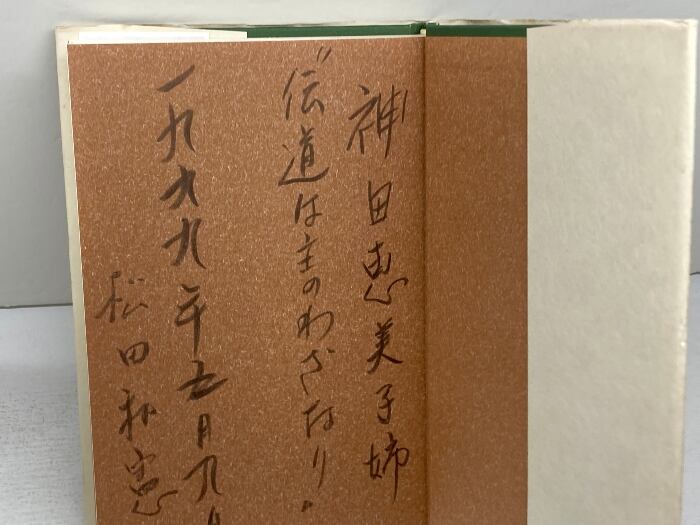 神田恵美子姉
"伝道は主のわざなり"
一九九九年五月九日
松田和憲